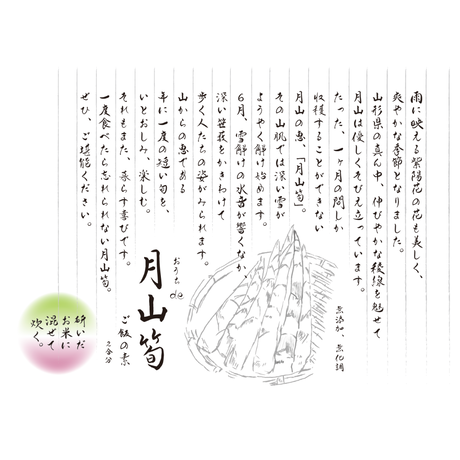 雨に映える紫陽花の花も美しく、
爽やかな季節となりました。
山形県の真ん中、伸びやかな稜線を魅せて
月山は優しくそびえ立っています。
たった、一ヶ月の間しか
収穫することができない
月山の恵、「月山筍」。
その山肌では深い雪が
ようやく解け始めます。
6月、雪解けの水音が響くなか、
深い笹薮をかきわけて
歩く人たちの姿がみられます。
山からの恵である
年に一度の短い旬を、
いとおしみ、楽しむ。
それもまた、暮らす喜びです。
一度食べたら忘れられない月山筍。
ぜひ、ご堪能ください。
無添加、無化調
おうちde
月山筍
ご飯の素
2合分
研いだ
お米に
混ぜて
炊く。